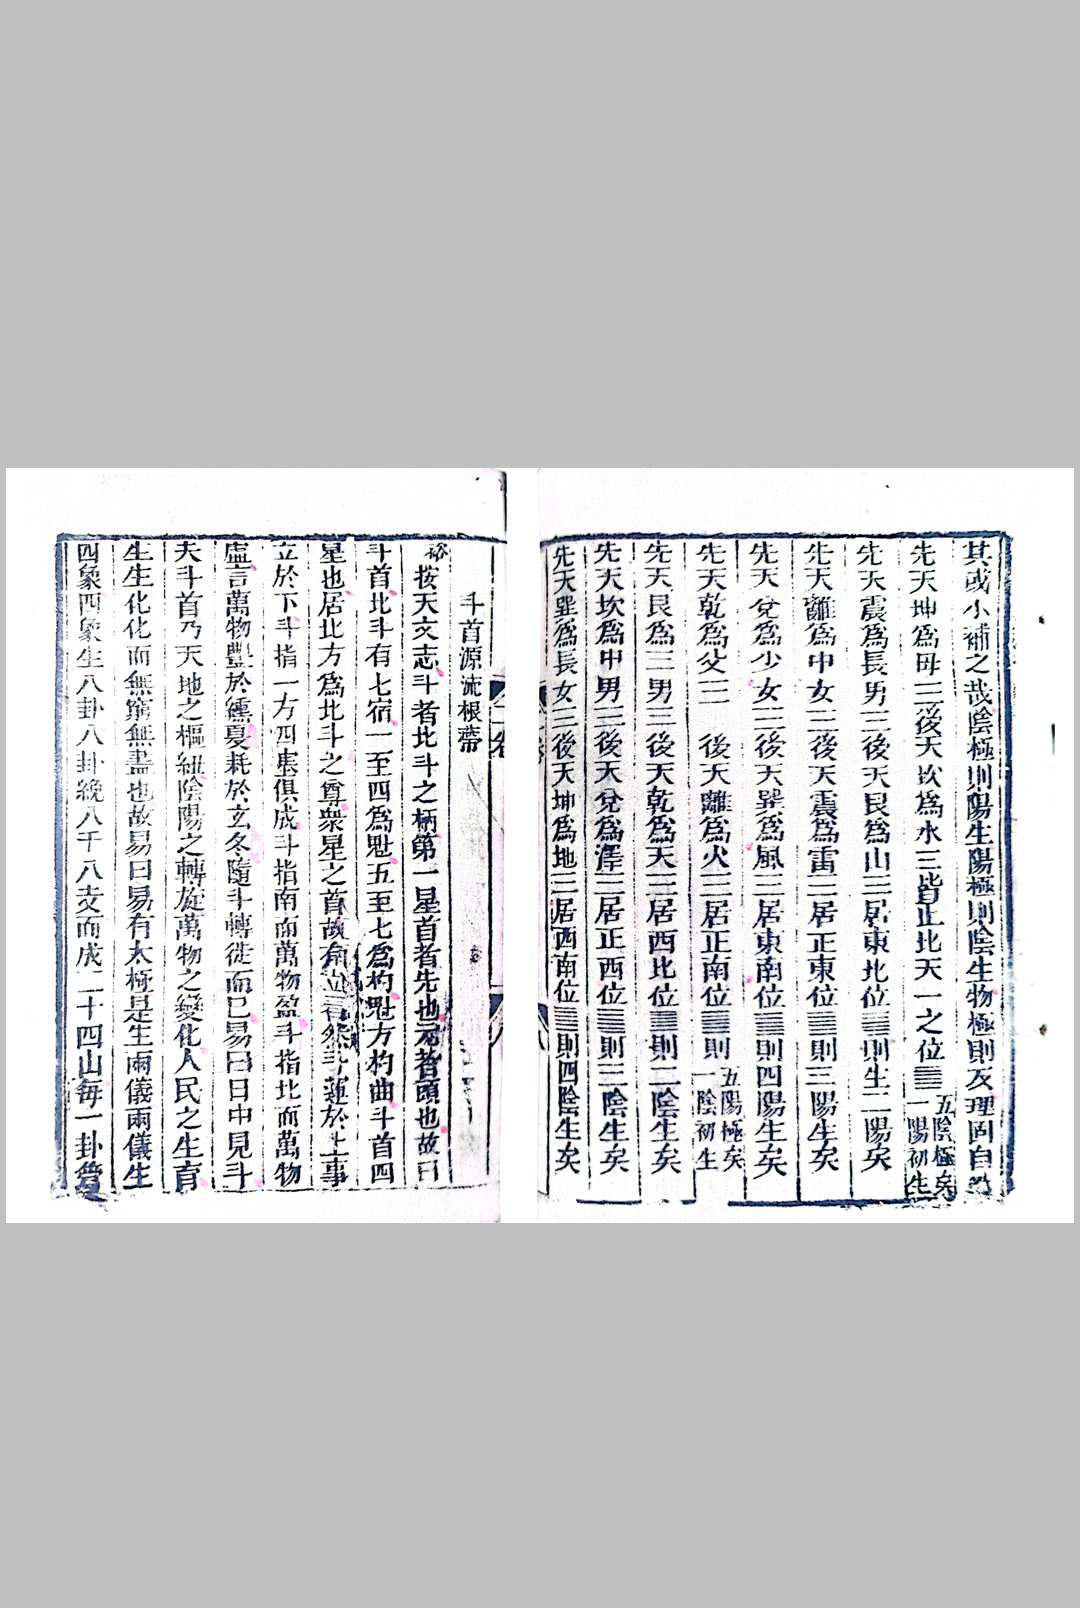 其或小補之哉陰極則陽生陽極則陰生物極則反理固自
先天坤為母☷後天坎為水☵皆正北天一之位
五陰極矣
一陽初生
先天震為長男☳後天艮為山☶居東北位則生二陽矣
先天離為中女☲後天震為雷☳居正東位則三陽生矣
先天兌為少女☱後天巽為風☴居東南位則四陽生矣
先天乾為父☰後天離為火☲居正南位則
五陽極矣
一陰初生
先天艮為三男☶後天乾為天☰居西北位則二陰生矣
先天坎為中男☵後天兌為澤☱居正西位則三陰生矣
先天巽為長女☴後天坤為地☷居西南位則四陰生矣
二卷
八
斗首源流根蒂
按天文志斗者北斗之柄第一星首者先也元者頭也故曰
斗首北斗有七宿一至四為魁五至七為杓魁方杓曲斗首四
星也居北方為北斗之尊衆星之首故斗運於上事
立於下斗指一方四塞俱成斗指南而萬物盈斗指北而萬物
虛言萬物豐於纁夏耗於玄冬隨斗轉徙而已易曰日中見斗
夫斗首乃天地之樞紐陰陽之轉旋萬物之變化人民之生育
生生化化而無窮無盡也故易曰易有太極是生兩儀兩儀生
四象四象生八卦八卦統八干八支而成二十四山每一卦管